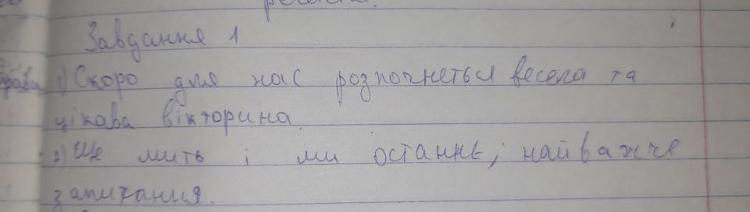 Завдання 1
1) Скоро для нас розпочнеться весела та
цікава вікторина.
2) Ще мить і ми останнє, найважче
запитання.